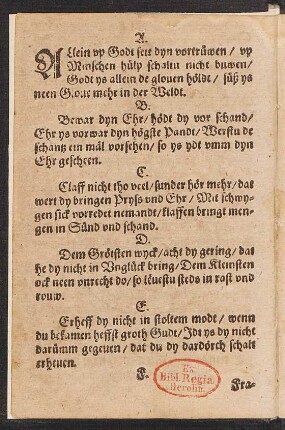 A.
Allein vp Godt sett dyn vortrüwen / vp
Minschen hülp schaltu nicht buwen/
Godt ys allein de glouen höldt / süß ys
neen G.oue mehr in der Weldt.
B.
Bewar dyn Ehr/ hödt dy vor schand/
Ehr ys vorwar dyn högste Pandt/ Werstu de
schantz ein mäl vorsehen/ so ys ydt vmm dyn
Ehr gescheen.
C.
Claff nicht tho veel/ sunder hör mehr/ dat
wert dy bringen Pryß vnd Ehr/ Mit schwy-
gen sick vorredet nemandt/ klaffen bringt men-
gen in Sünd vnd schand.
D.
Dem Grötsten wyck/ acht dy gering/ dat
he dy nicht in Vnglück bring/ Dem Kleinsten
ock neen vnrecht do/ so leuestu steds in rast vnd
rouw.
E.
Erheff dy nicht in stoltem modt/ wenn
du bekamen heffst groth Gudt/ Idt ys dy nicht
darümm gegeuen/ dat du dy dardörch schalt
erheuen.
F. Fra-
Ex
Bibl. Regia
Berolin.